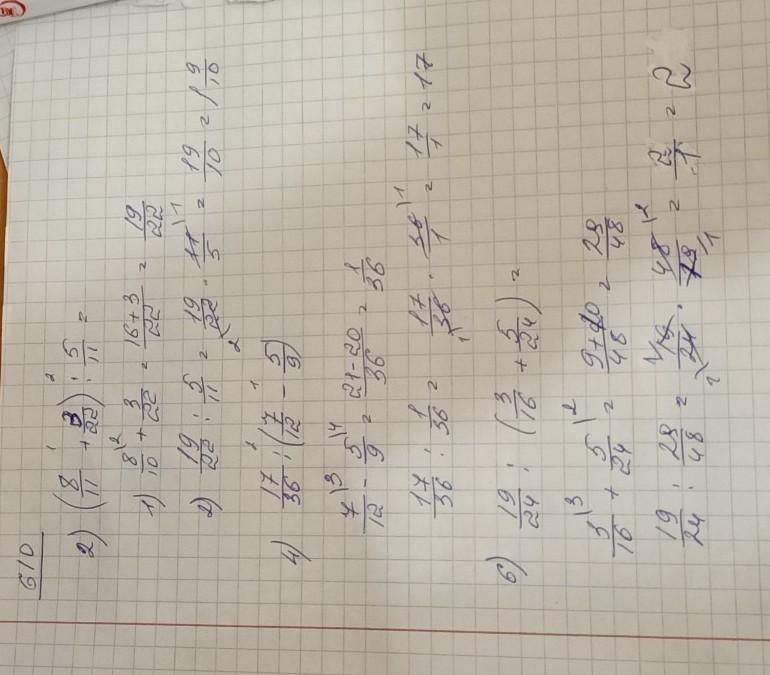 610
2) (8/11 + 3/22) : 5/11 =
1) 8/10 + 3/22 = 16+3/22 = 19/22
2) 19/22 : 5/11 = 19/22 · 11/5 = 19/10 = 1 9/10
4) 17/36 : (7/12 - 5/9)
7/12 - 5/9 = 21-20/36 = 1/36
17/36 : 1/36 = 17/36 · 36/1 = 17/1 = 17
6) 19/24 : (3/16 + 5/24) =
3/16 + 5/24 = 9+10/48 = 29/48
19/24 : 29/48 = 19/24 · 48/19 = 2/1 = 2